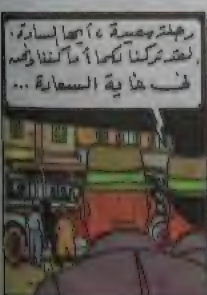 رحلة سعيدة، أيها السادة،
لقد تركنا لكما أماكننا ونحن
في غاية السعادة ...